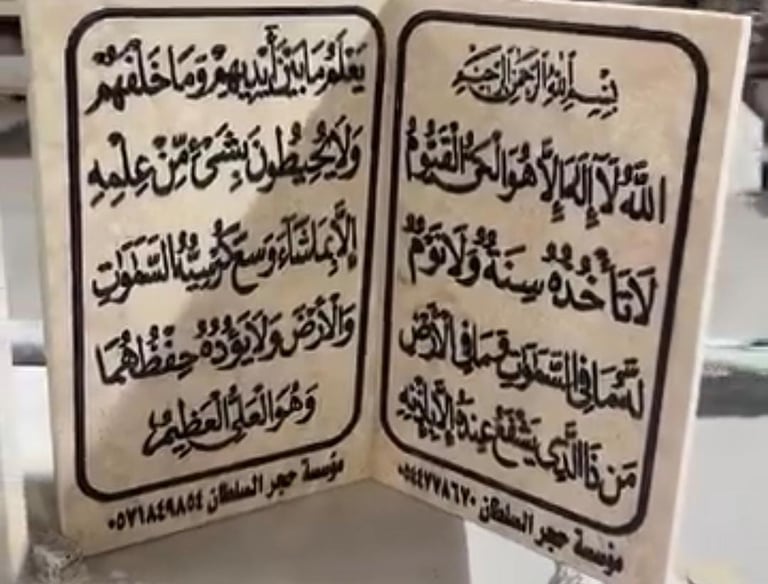 بِسْمِ اللَّهِ الرَّحْمَٰنِ الرَّحِيمِ
اللَّهُ لَا إِلَٰهَ إِلَّا هُوَ الْحَيُّ الْقَيُّومُ
لَا تَأْخُذُهُ سِنَةٌ وَلَا نَوْمٌ
لَّهُ مَا فِي السَّمَٰوَٰتِ وَمَا فِي الْأَرْضِ
مَن ذَا الَّذِي يَشْفَعُ عِندَهُ إِلَّا بِإِذْنِهِ
مؤسسة حجر السلطان ٠٥٤٤٧٧٨٦٧٠
يَعْلَمُ مَا بَيْنَ أَيْدِيهِمْ وَمَا خَلْفَهُمْ
وَلَا يُحِيطُونَ بِشَيْءٍ مِّنْ عِلْمِهِ
إِلَّا بِمَا شَاءَ وَسِعَ كُرْسِيُّهُ السَّمَٰوَٰتِ
وَالْأَرْضَ وَلَا يَؤُدُهُ حِفْظُهُمَا
وَهُوَ الْعَلِيُّ الْعَظِيمُ
مؤسسة حجر السلطان ٠٥٧١٨٤٩٨٥٤